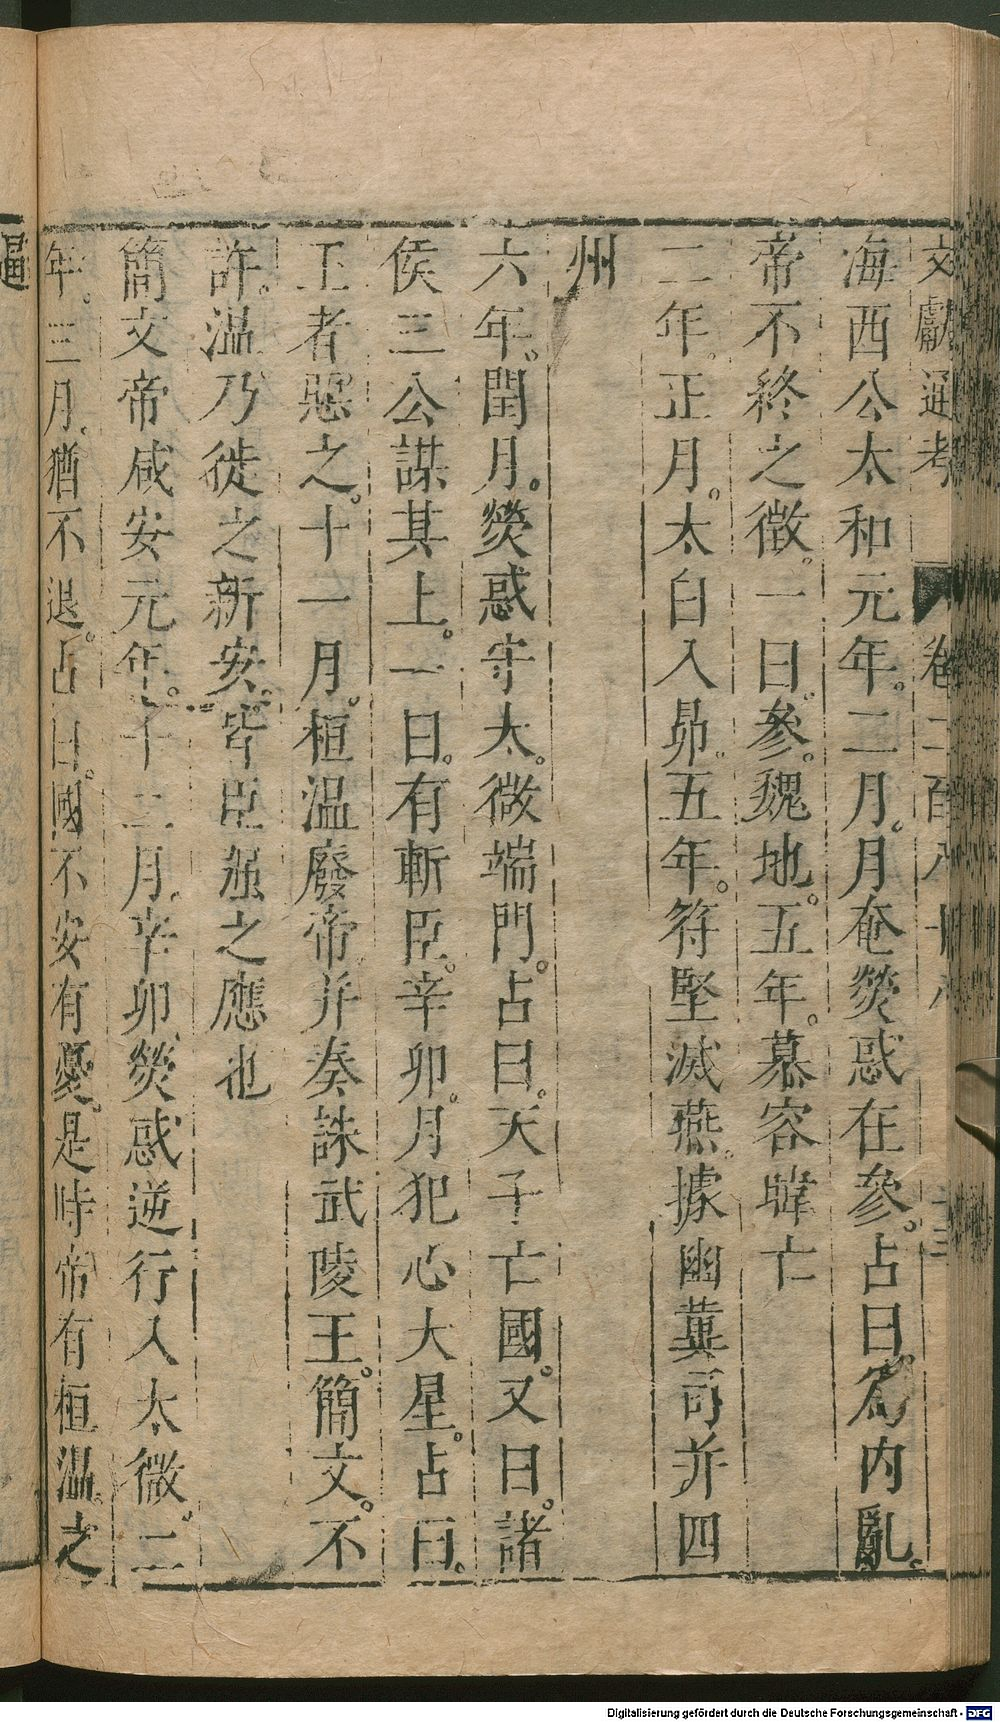 文獻通考 卷二百八十八 十三
海西公太和元年。二月。月奄熒惑在參。占曰。為內亂。
帝不終之徵。一曰。參。魏地。五年。慕容暐亡
二年。正月。太白入昴。五年。符堅滅燕。據幽冀司并四
州
六年。閏月。熒惑守太。微端門。占曰。天子亡國。又曰。諸
侯三公謀其上。一曰。有斬臣。辛卯。月犯心大星。占曰。
王者惡之。十一月。桓溫廢帝并奏誅武陵王。簡文。不
許。溫乃徙之新安。皆臣強之應也
簡文帝咸安元年。十二月。辛卯。熒惑逆行入太微。二
年。三月。猶不退。占曰。國不安有憂。是時帝有桓溫。之
逼
Digitalisierung gefördert durch die Deutsche Forschungsgemeinschaft - DFG